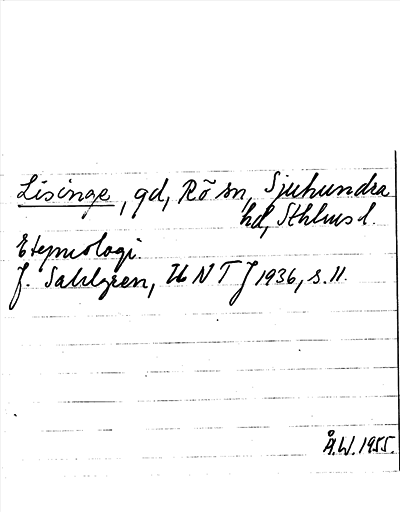 Lisinge, gd, Rö sn, Sjuhundra
hd, Sthlms l.
Etymologi.
J. Sahlgren, UNT J 1936, s. 11.
Å.W. 1955.